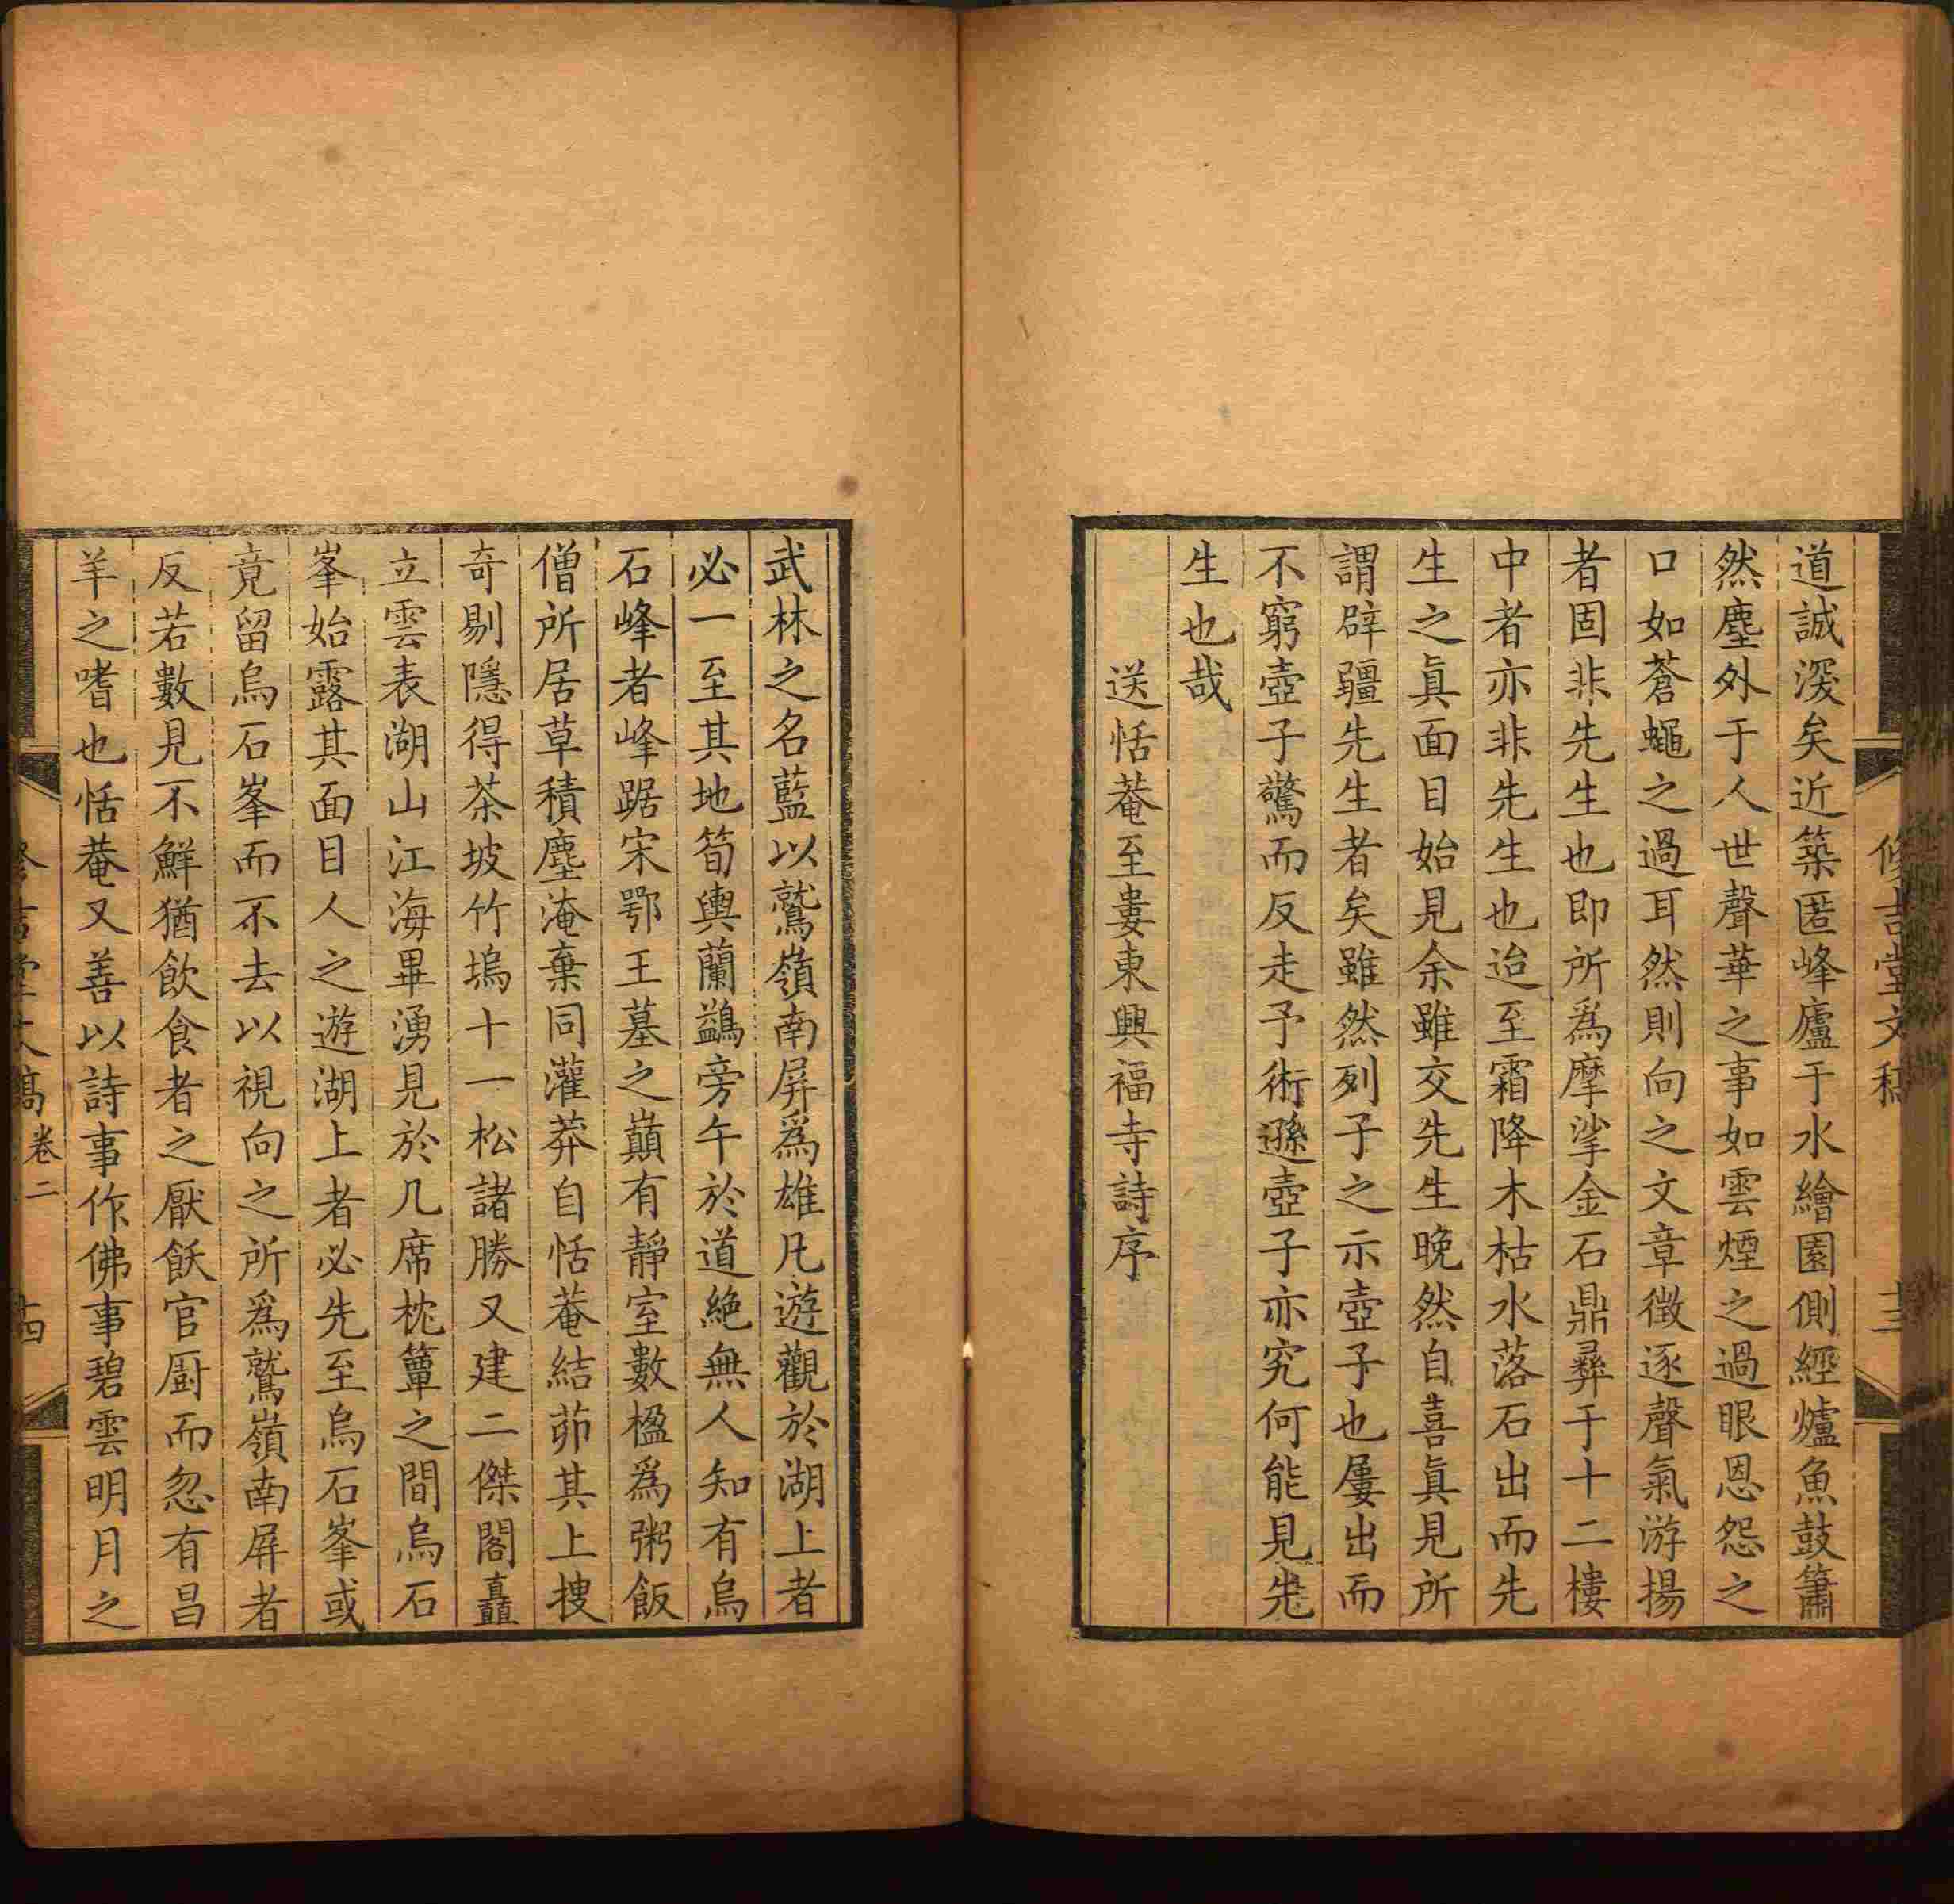 道誠深矣近築匿峰廬于水繪園側經爐魚鼓簫
然塵外于人世聲華之事如雲煙之過眼恩怨之
口如蒼蠅之過耳然則向之文章徵逐聲氣游揚
者固非先生也即所爲摩挲金石鼎彞于十二樓
中者亦非先生也迨至霜降木枯水落石出而先
生之眞面目始見余雖交先生晚然自喜眞見所
謂辟疆先生者矣雖然列子之示壺子也屢出而
不窮壺子驚而反走予術遜壺子亦究何能見先
生也哉
送恬菴至婁東興福寺詩序
武林之名藍以鷲嶺南屏爲雄凡遊觀於湖上者
必一至其地筍輿蘭鷁旁午於道絶無人知有烏
石峰者峰踞宋鄂王墓之巓有靜室數楹爲粥飯
僧所居草積塵淹棄同灌莽自恬菴結茆其上搜
奇剔隱得茶坡竹塢十一松諸勝又建二傑閣矗
立雲表湖山江海畢湧見於几席枕簟之間烏石
峯始露其面目人之遊湖上者必先至烏石峯或
竟留烏石峯而不去以視向之所爲鷲嶺南屏者
反若數見不鮮猶飲食者之厭飫官厨而忽有昌
羊之嗜也恬菴又善以詩事作佛事碧雲明月之
卷二